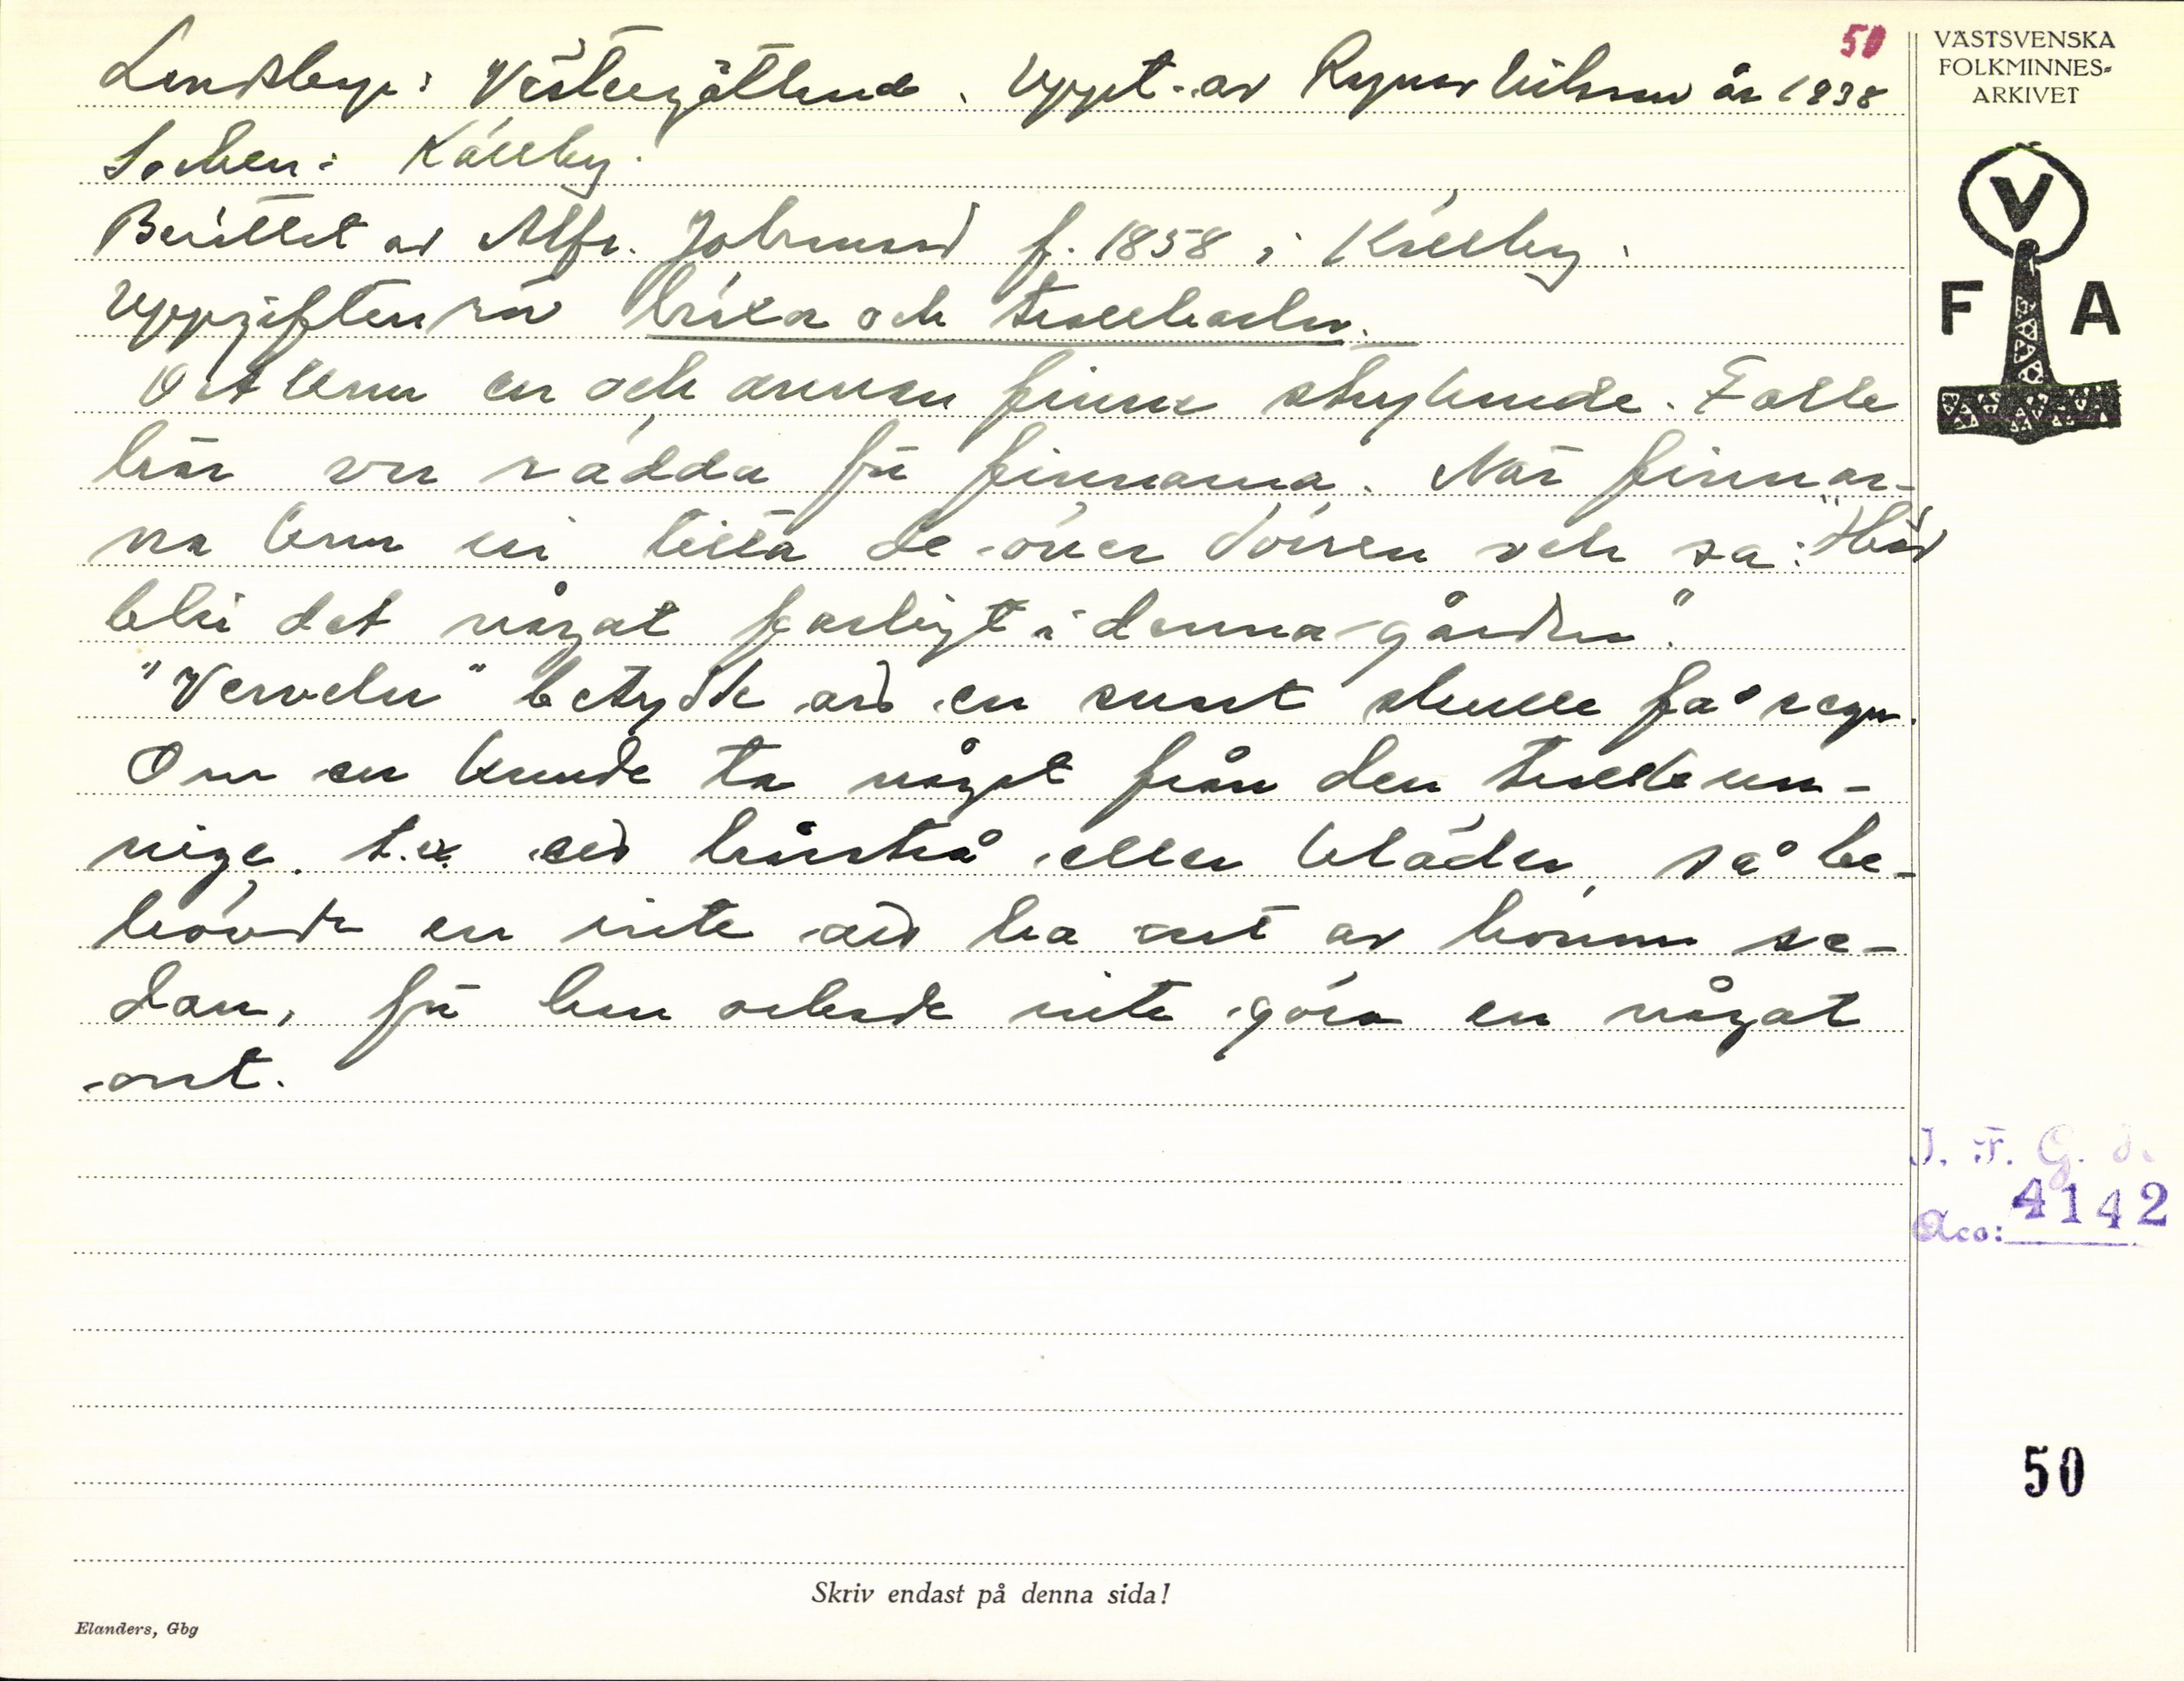 50
VÄSTSVENSKA
FOLKMINNES-
ARKIVET
Landskap: Västergötland. Uppt. av Ragnar Nilsson år 1938
Socken: Källby.
Berättat av Alfr. Johansson f. 1858 i Källby.
Uppgiften rör häxa och trollkarlar.
Det kom en och annan finne strykande. Folk
här var rädda för finnarna. När finnar-
na kom in titta de över dörren och sa: "Här
blir det något farligt i denna gården".
"Verveln" betydde att en snart skulle få regn.
Om en kunde ta något från den trollkun-
nige, t.ex. ett hårstrå eller kläder, så be-
hövde en inte att ha ont av honom se-
dan, för han orkade inte göra en något
ont.
V
F A
I. F. G. H.
Acc: 4142
50
Skriv endast på denna sida!
Elanders, Gbg